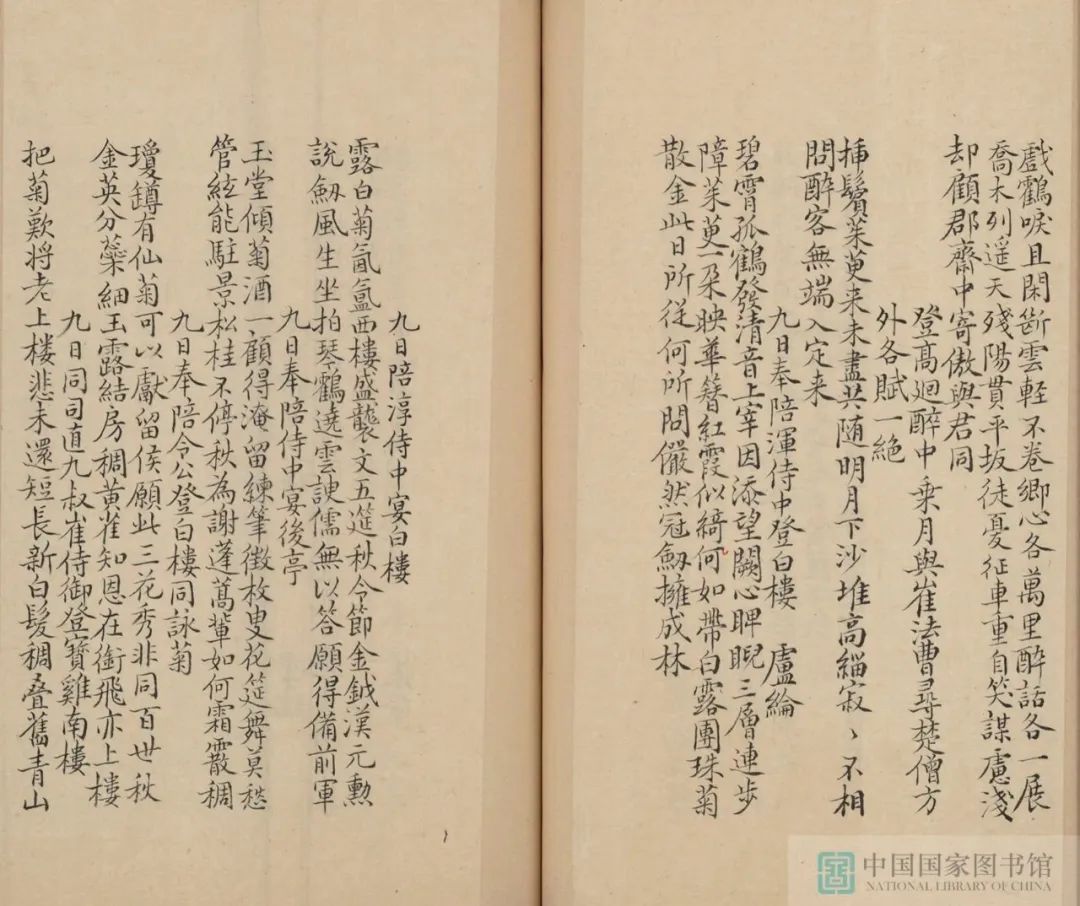 戲鶴唳且閑斷雲輕不卷鄉心各萬里醉話各一展
喬木列遥天殘陽貫平坂徒憂征車重自笑謀慮淺
却顧郡齋中寄傲與君同
登高迴醉中乗月與崔法曹尋楚僧方
外各賦一絶
揷鬢茱萸来未盡共随明月下沙堆高緇寂〻不相
問醉客無端入定来
九日奉陪渾侍中登白樓 盧綸
碧霄孤鶴發清音上宰因添望闕心睥睨三層連步
障茱萸一朶映華簪紅霞似綺何如帶白露團珠菊
散金此日所從何所問儼然冠劔擁成林
九日陪淳侍中宴白樓
露白菊氤氲西樓盛襲文五筵秋令節金鉞漢元勲
說劔風生坐抽琴鶴遶雲諛儒無以答願得備前軍
九日奉陪侍中宴後亭
玉堂傾菊酒一顧得淹留練筆徵枚叟花筵舞莫愁
管絃能駐景松桂不停秋為謝蓬蒿輩如何霜霰稠
九日奉陪令公登白樓同詠菊
瓊罇有仙菊可以獻留侯願此三花秀非同百世秋
金英分蘂細玉露結房稠黄雀知恩在銜飛亦上樓
九日同司直九叔崔侍御登寶雞南樓
把菊歎将老上樓悲未還短長新白髮稠叠舊青山
中国国家图书馆
NATIONAL LIBRARY OF CHINA